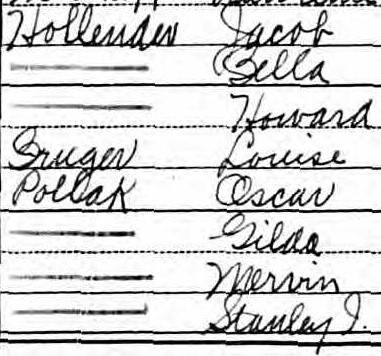 Hollender Jacob
—— Bella
—— Howard
Gruger Louise
Pollak Oscar
—— Gilda
—— Mervin
—— Stanley J.